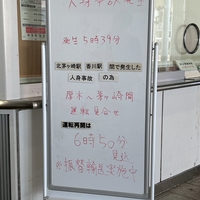 人身事故発生
発生5時39分
北茅ヶ崎駅 香川駅 間で発生した
人身事故 の為
厚木〜茅ヶ崎間
運転見合せ
運転再開は
6時50分
見込
※振替輸送実施中